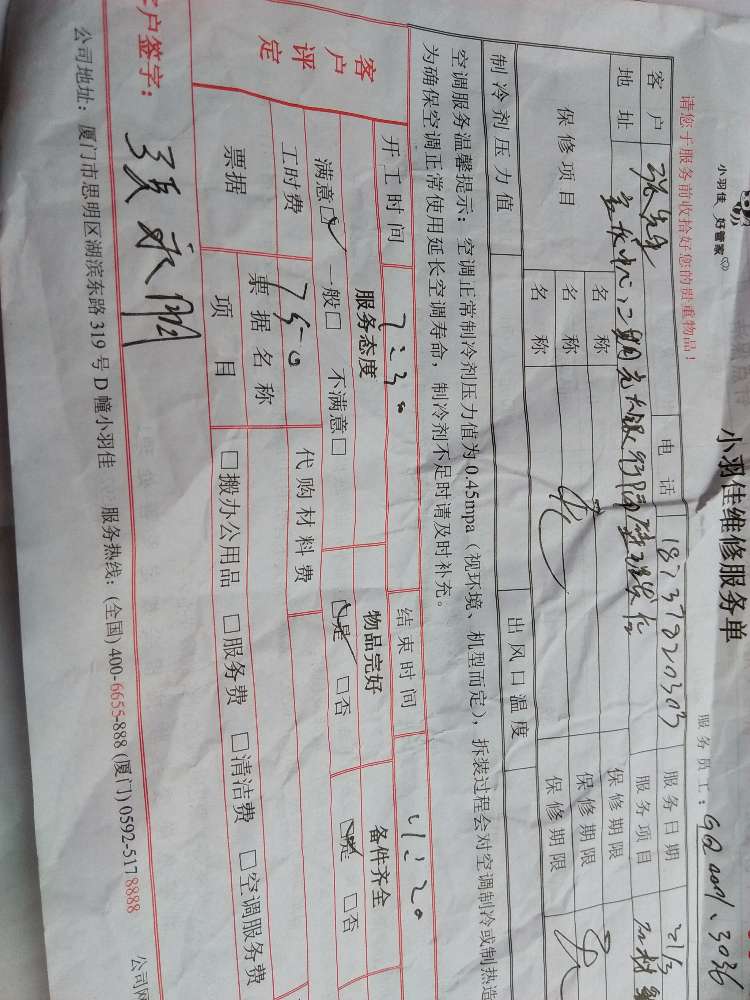 小羽佳 好管家
小羽佳维修服务单
请您于服务前收拾好您的贵重物品！
服务员工：
客户 张先生 电话 18737820303 服务日期 21/3
地址 服务项目
保修项目 名称 保修期限
名称 保修期限
名称 保修期限
制冷剂压力值 出风口温度
空调服务温馨提示：空调正常制冷剂压力值为0.45mpa（视环境、机型而定），拆装过程会对空调制冷或制热造
为确保空调正常使用延长空调寿命，制冷剂不足时请及时补充。
开工时间 7:30 结束时间 11:20
客户评定 服务态度 物品完好 备件齐全
满意☑ 一般□ 不满意□ ☑是 □否 ☑是 □否
工时费 750 代购材料费
票据 票据名称
项目 □搬办公用品 □服务费 □清洁费 □空调服务费
客户签字：
公司地址：厦门市思明区湖滨东路 319 号 D 幢小羽佳 服务热线：(全国) 400-6655-888 (厦门) 0592-5178888 公司网